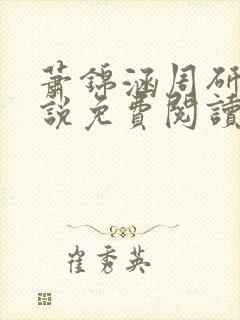 蕭錦涵周研
說免費閱讀
崔秀英